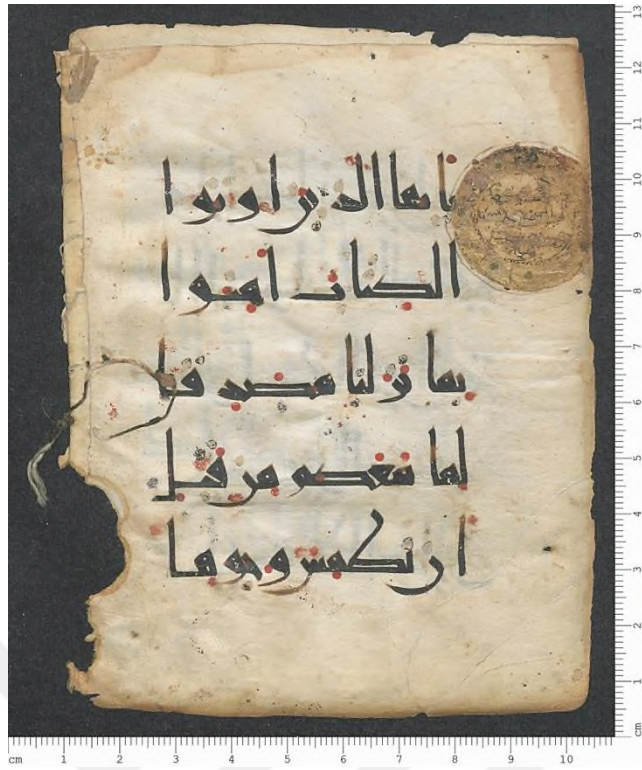 يايها الذين اوتوا
الكتب امنوا
بما نزلنا مصدقا
لما معكم من قبل
ان نطمس وجوها
cm 1 2 3 4 5 6 7 8 9 10
cm 1 2 3 4 5 6 7 8 9 10 11 12 13